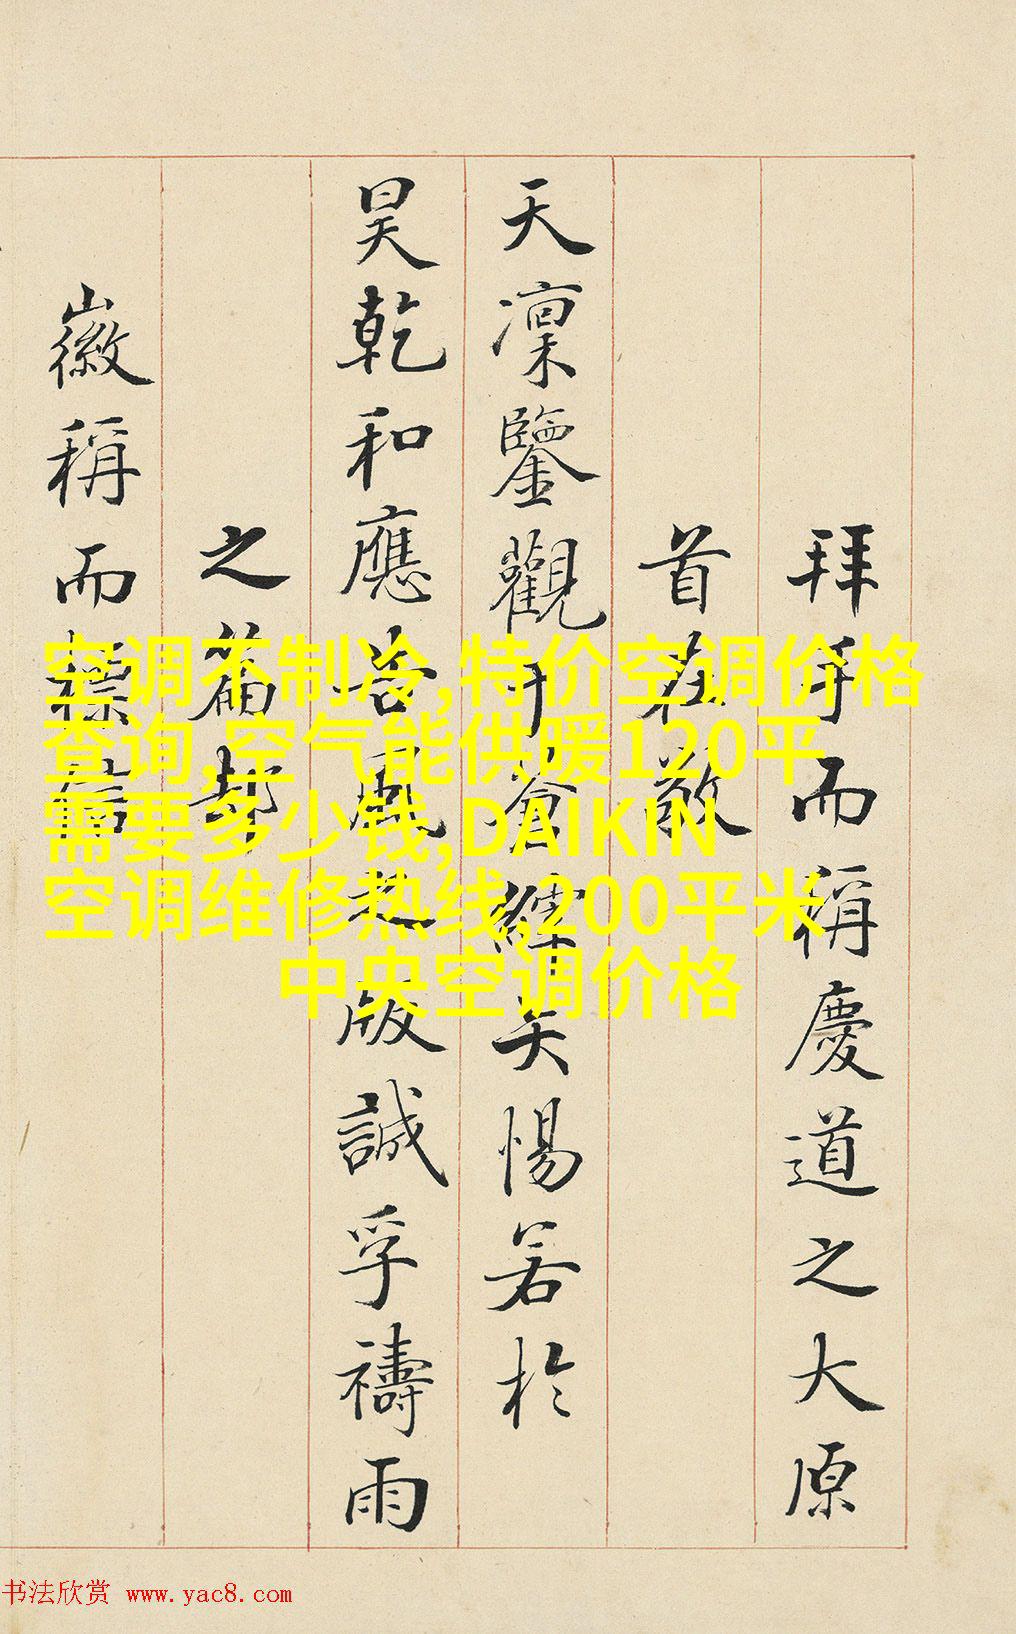 拜手而稱慶道之大原
首在敬
天凜鑒觀矢惕若於
昊乾和應版誠孚禱雨
之篇
徽稱而標
空调不制冷,特价空调价格
查询,空气能供暖120平
需要多少钱,DAIKIN
空调维修热线,200平米
中央空调价格
书法欣赏 www.yac8.com